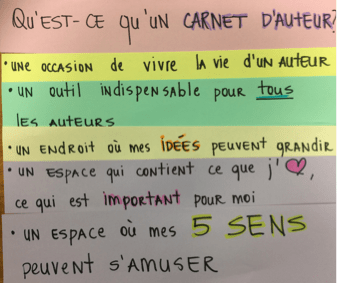 QU'EST-CE qu'UN CARNET D'AUTEUR?
• UNE OCCASION de VIVRE la VIE d'UN AUTEUR
• UN OUTIL INDISPENSABLE POUR tous
les AUTEURS
• UN ENDROIT OÙ MES IDÉES PEUVENT GRANDIR
• UN ESPACE QUI CONTIENT CE QUE J'❤,
CE QUI EST IMPORTANT POUR MOI
• UN ESPACE OÙ MES 5 SENS
PEUVENT S'AMUSER